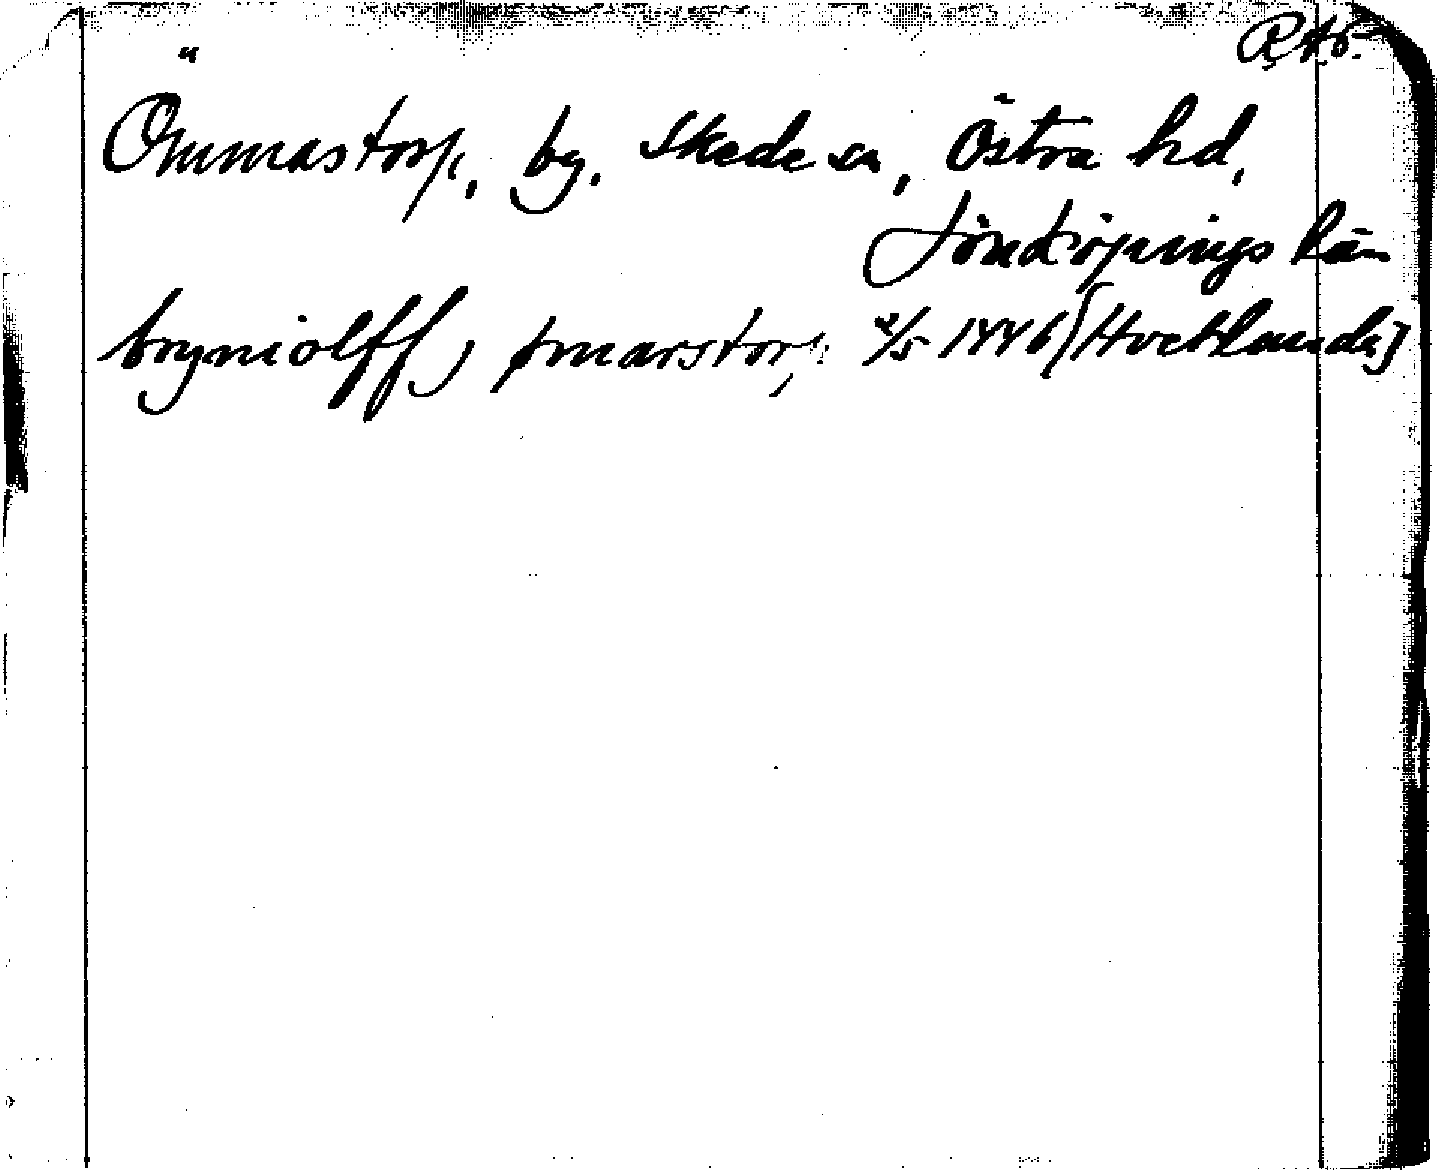 R.A.P.
Ömmastorp, by. Skede sn, Östra hd,
Jönköpings län
bryniolff j ømarstorp 4/5 1446 [Hvetlanda]